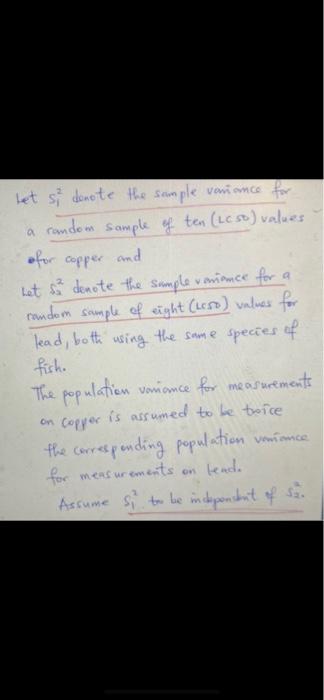 Let S₁² denote the sample variance for
a random sample of ten (LC50) values
for copper and
Let S₂² denote the sample variance for a
random sample of eight (LC50) values for
lead, both using the same species of
fish.
The population variance for measurements
on copper is assumed to be twice
the corresponding population variance
for measurements on lead.
Assume S₁² to be independent of S₂².